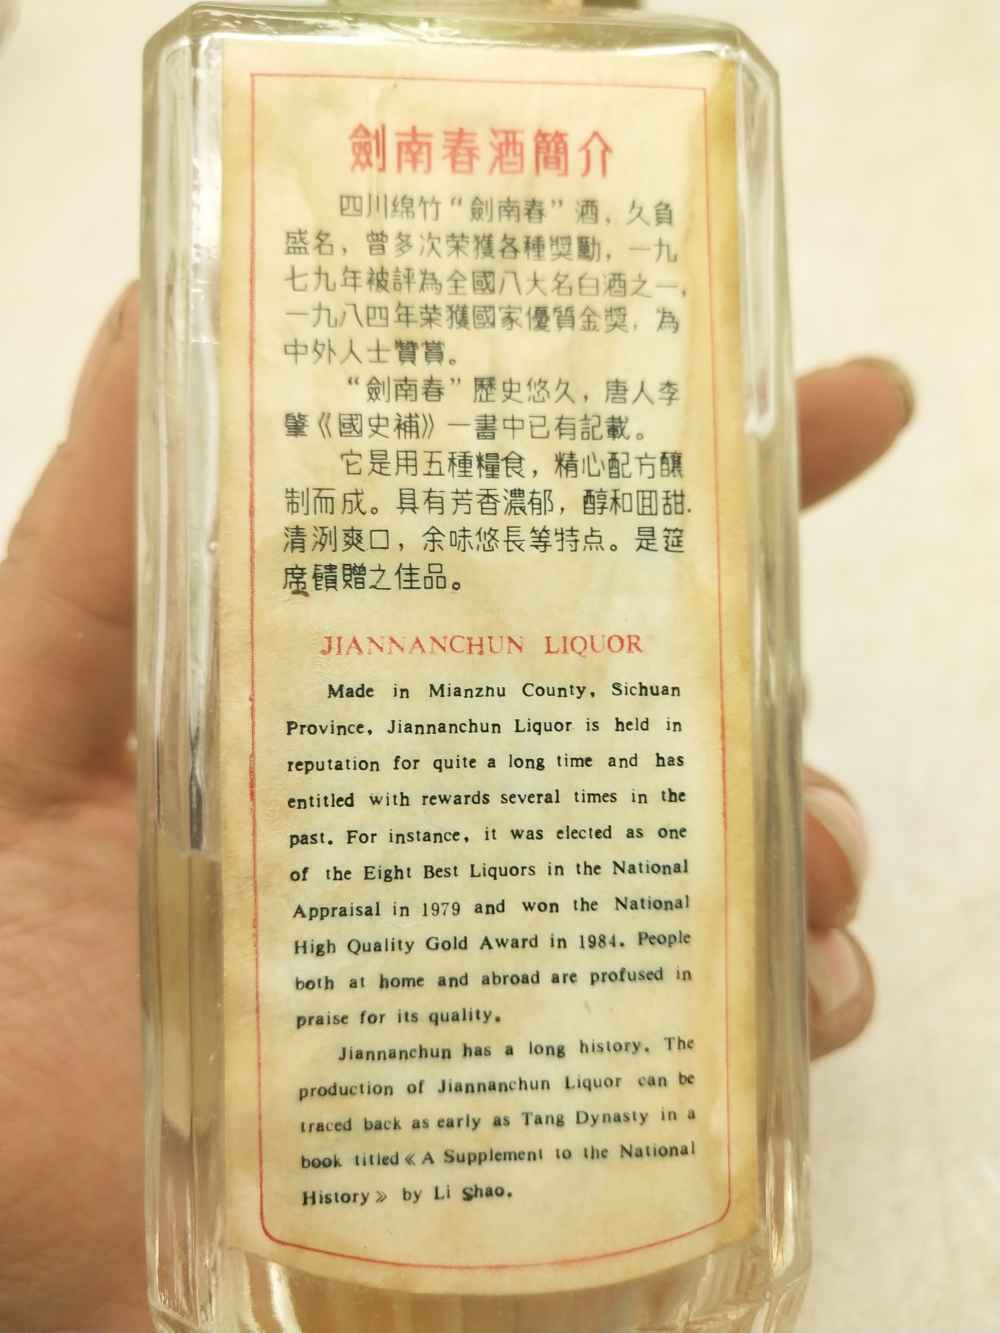 劍南春酒簡介
四川綿竹“劍南春”酒，久負
盛名，曾多次荣獲各種獎勵，一九
七九年被評為全國八大名白酒之一，
一九八四年荣獲國家優質金獎，為
中外人士贊賞。
“劍南春”歷史悠久，唐人李
肇《國史補》一書中已有記載。
它是用五種糧食，精心配方釀
制而成。具有芳香濃郁，醇和囬甜．
清洌爽口，余味悠長等特点。是筵
席饋贈之佳品。
JIANNANCHUN LIQUOR
Made in Mianzhu County, Sichuan
Province, Jiannanchun Liquor is held in
reputation for quite a long time and has
entitled with rewards several times in the
past. For instance, it was elected as one
of the Eight Best Liquors in the National
Appraisal in 1979 and won the National
High Quality Gold Award in 1984. People
both at home and abroad are profused in
praise for its quality.
Jiannanchun has a long history. The
production of Jiannanchun Liquor can be
traced back as early as Tang Dynasty in a
book titled《A Supplement to the National
History》 by Li Shao.